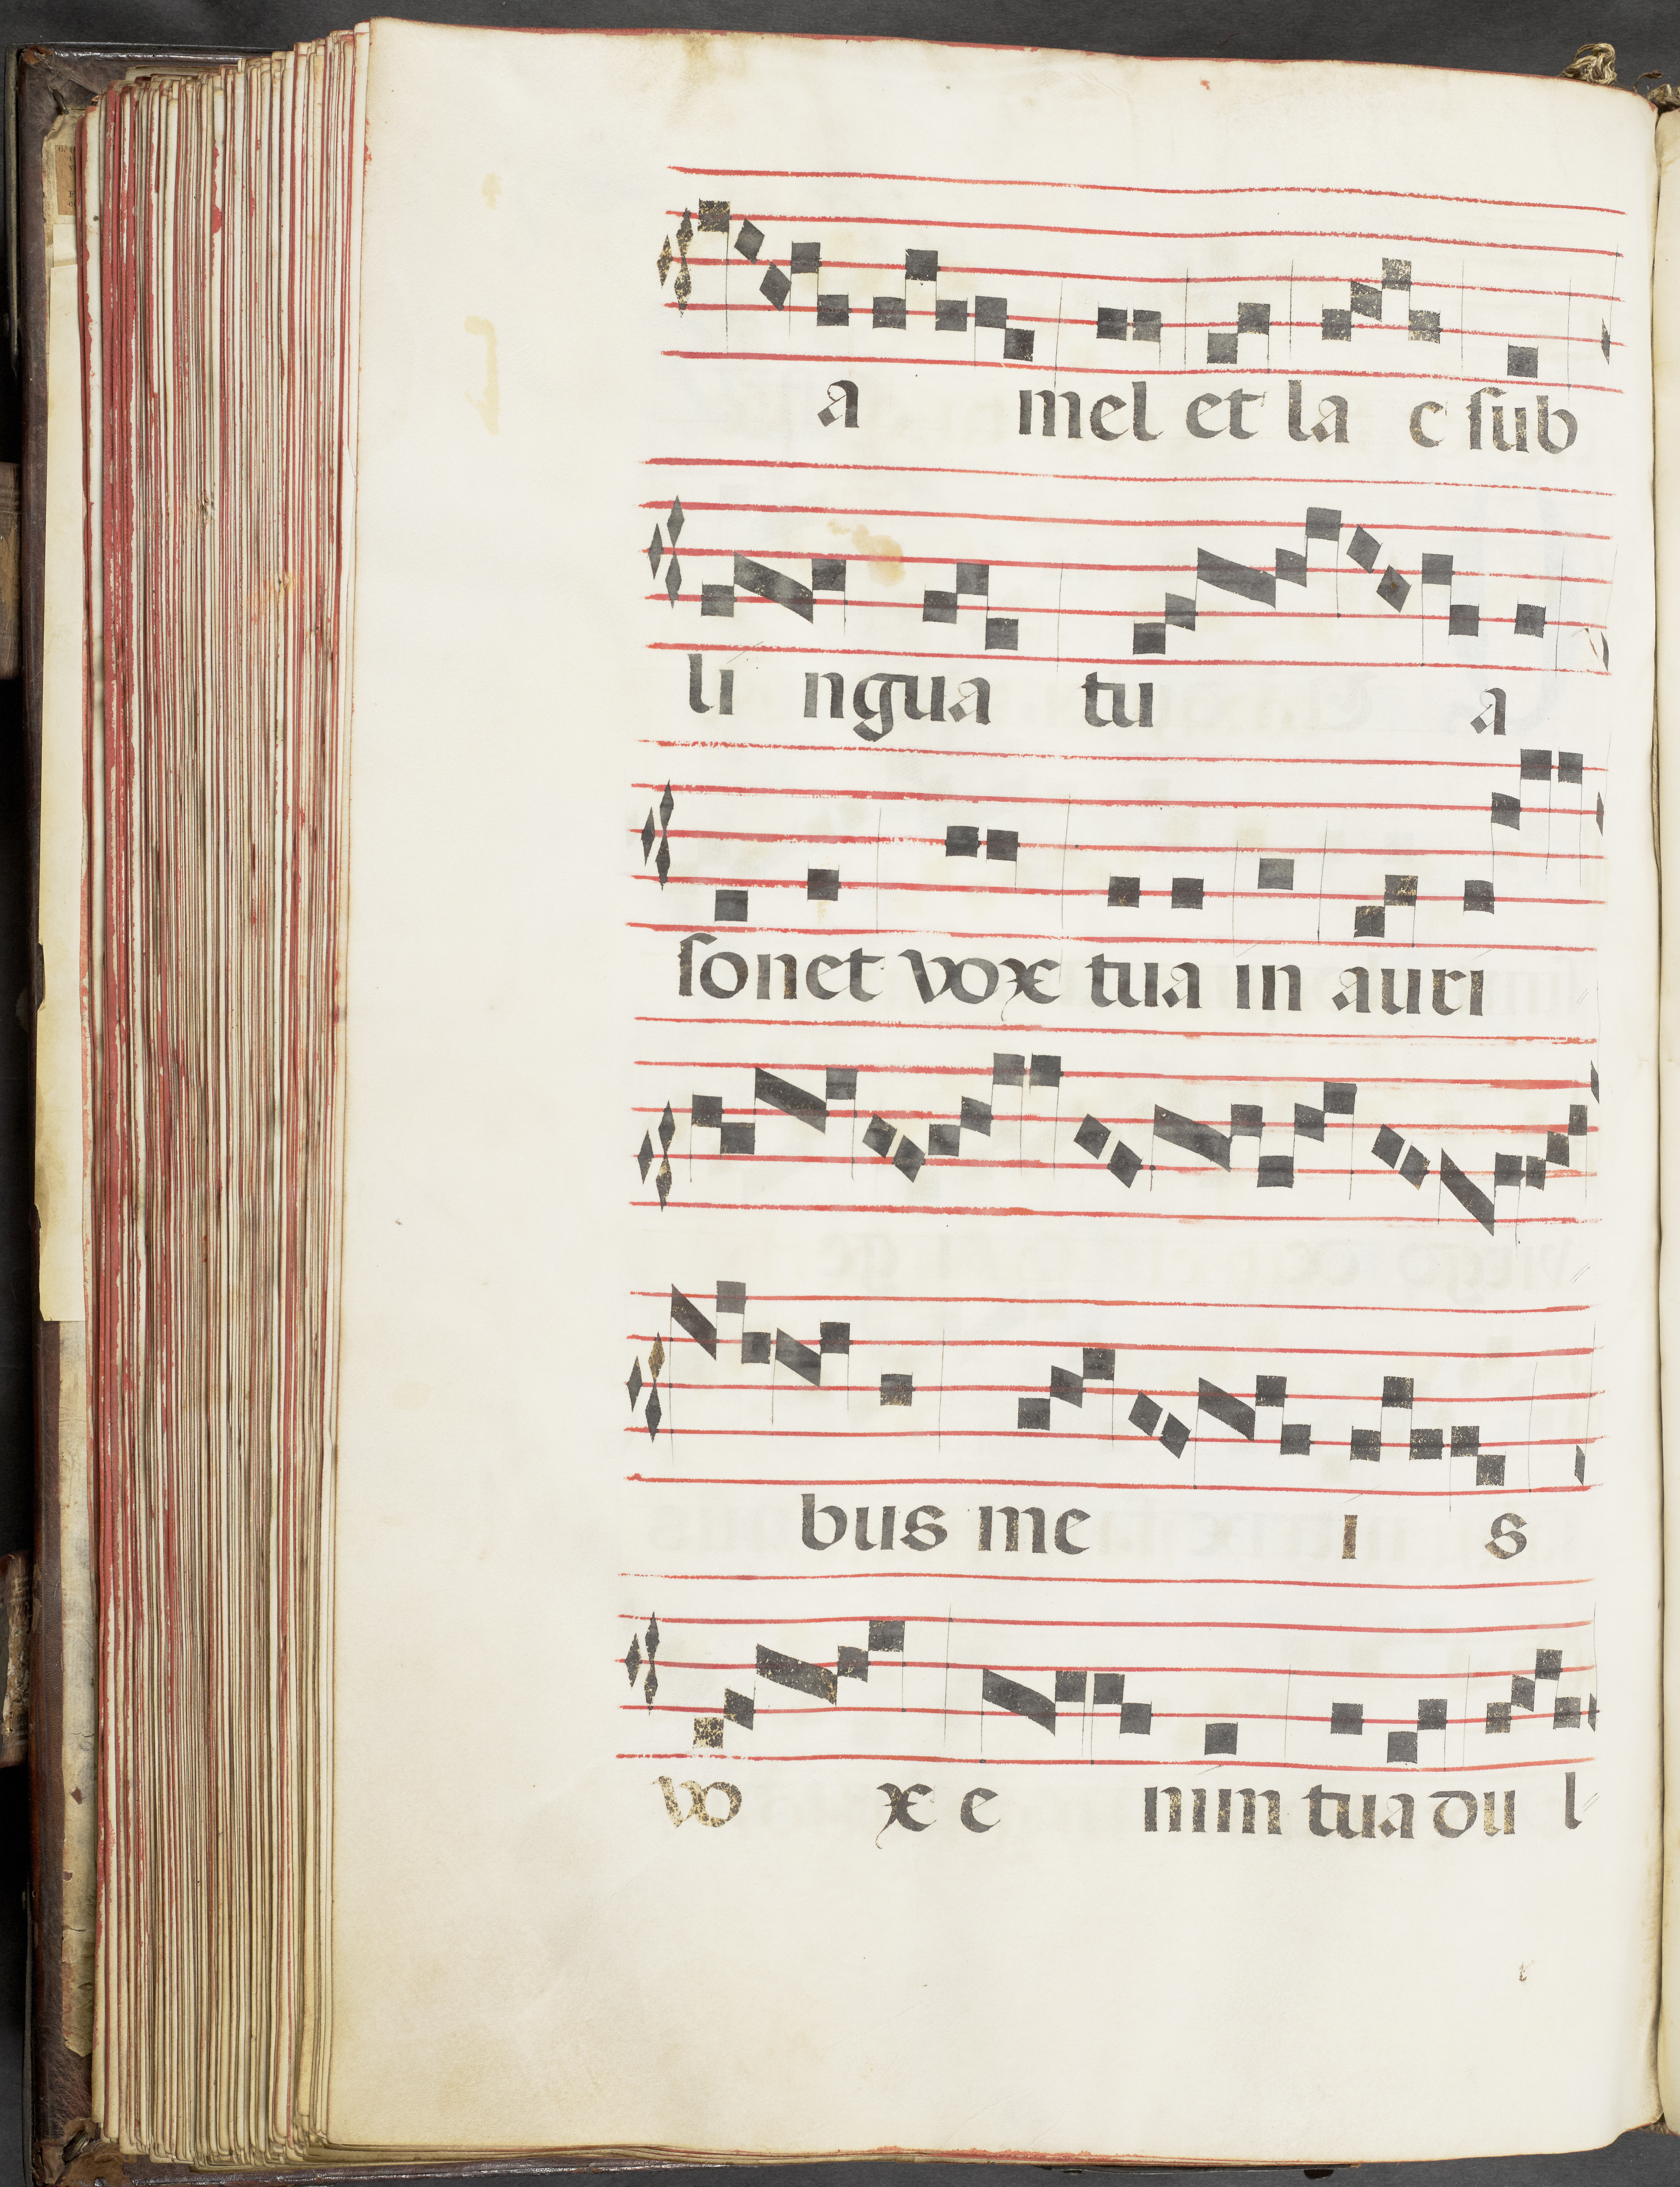 a mel et la c ſub
li ngua tu a
ſonet vox tua in auri
bus me i s
vo x e nim tua du l